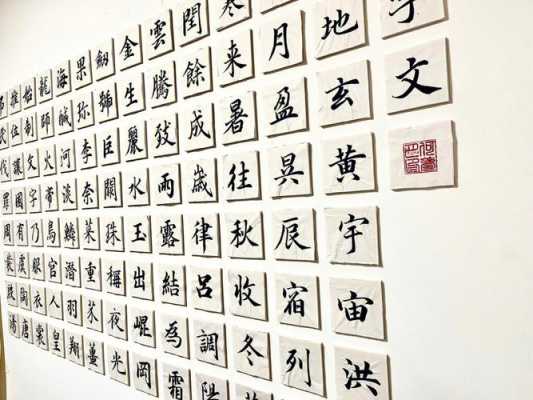 字文
地玄黄宇宙洪
月盈昃辰宿列
寒来暑往秋收冬
閏餘成歳律呂調陽
雲騰致雨露結為霜
金生麗水玉出崐岡
劔號巨闕珠稱夜光
果珎李柰菜重芥薑
海鹹河淡鱗潜羽翔
龍師火帝鳥官人皇
始制文字乃服衣裳
推位讓國有虞陶唐
民伐罪周發殷湯